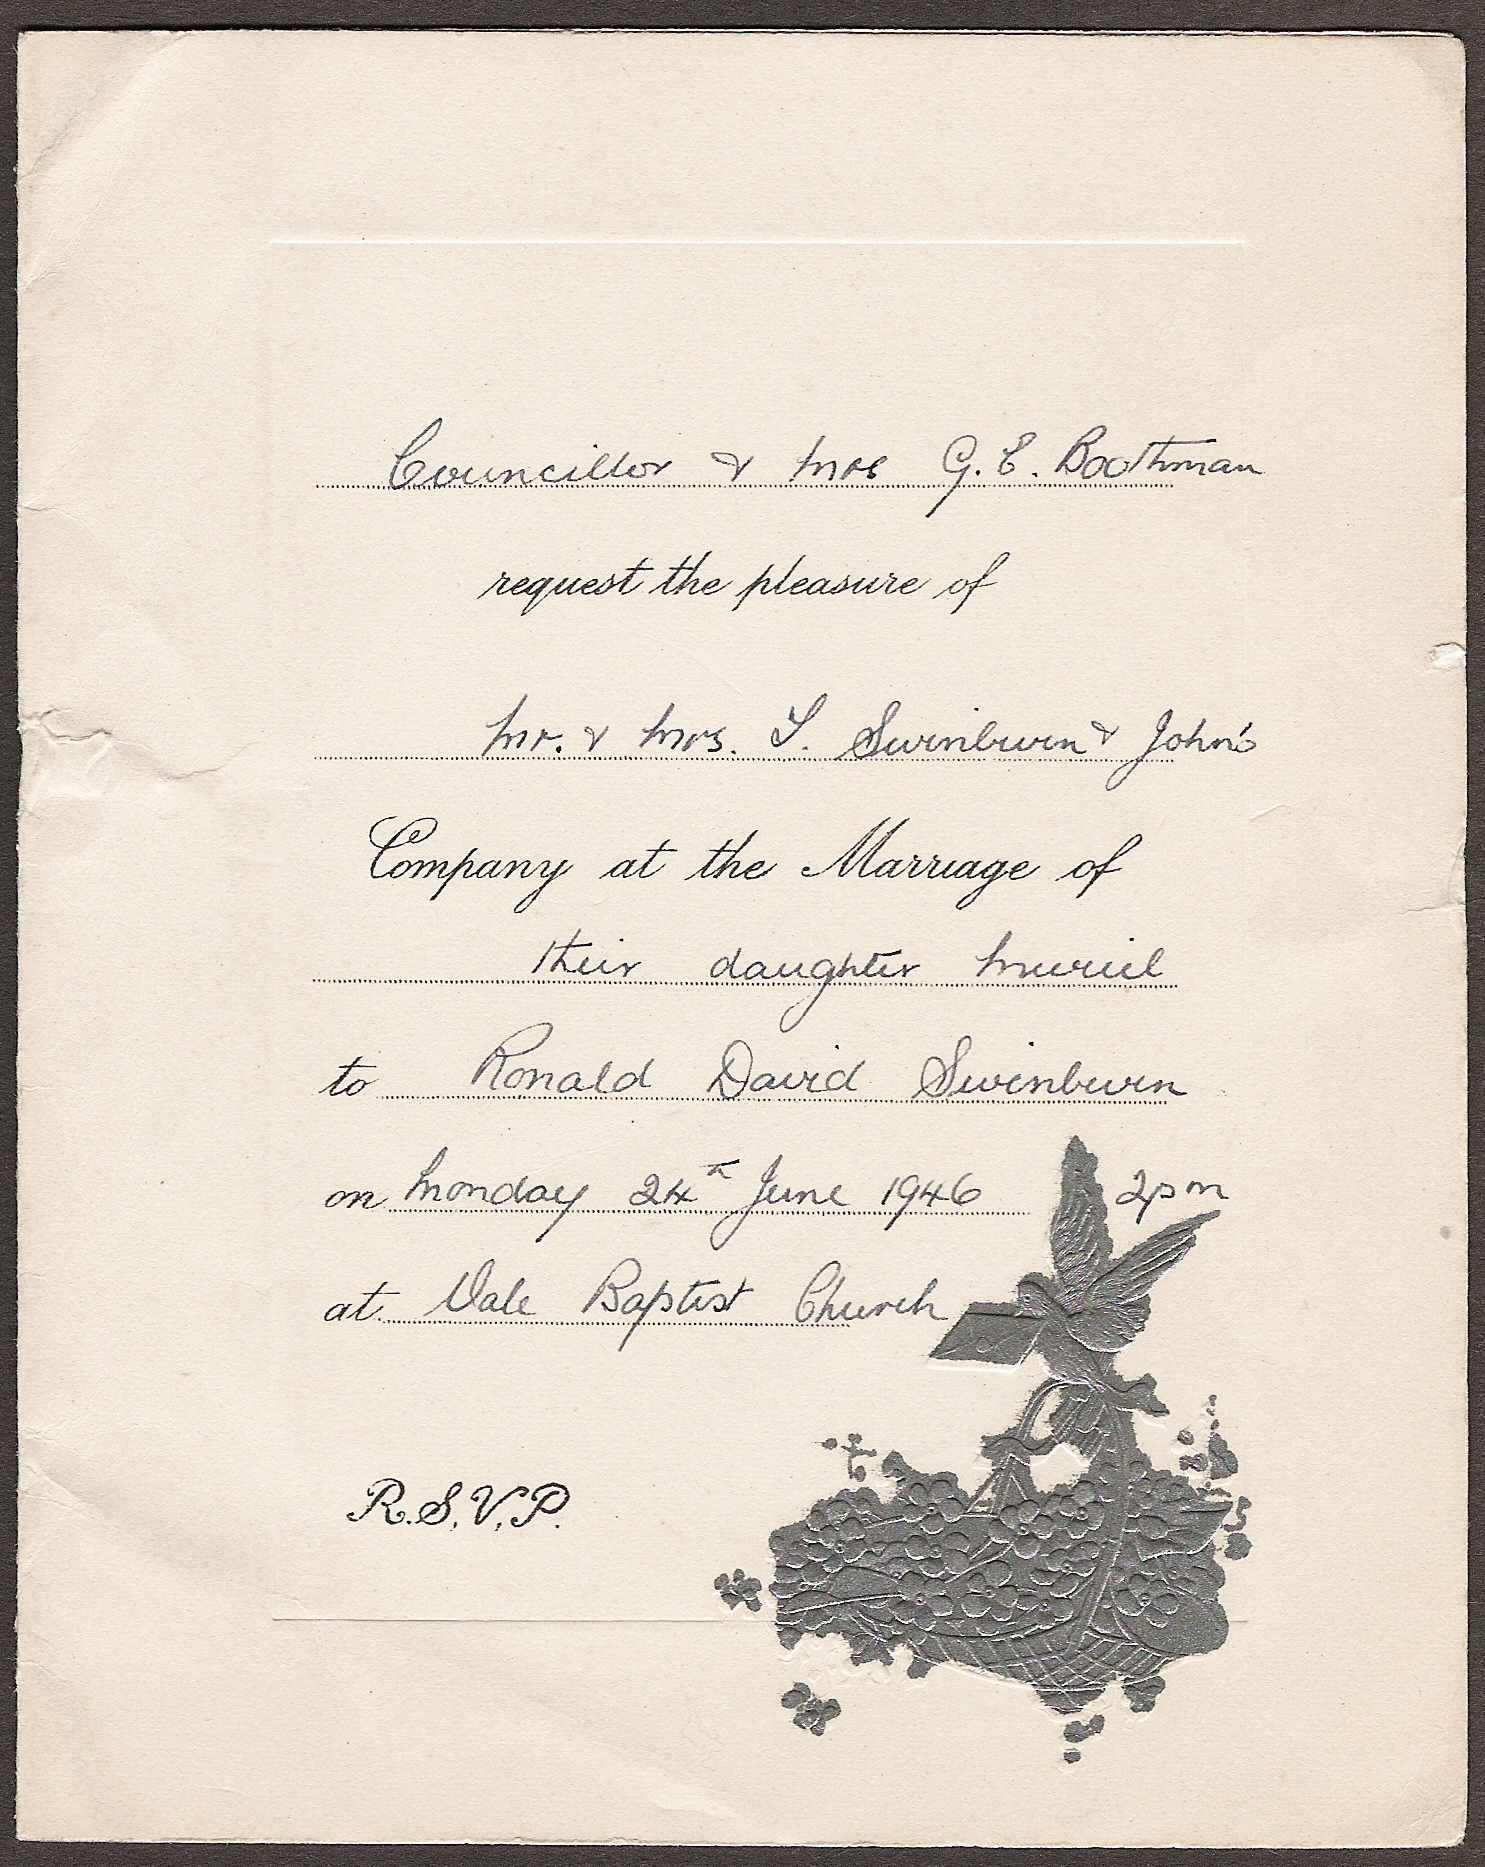 Councillor & Mrs G. E. Boothman
request the pleasure of
Mr. & Mrs. L. Swinburn & John's
Company at the Marriage of
their daughter Muriel
to Ronald David Swinburn
on Monday 24th June 1946 2pm
at Vale Baptist Church
R.S.V.P.